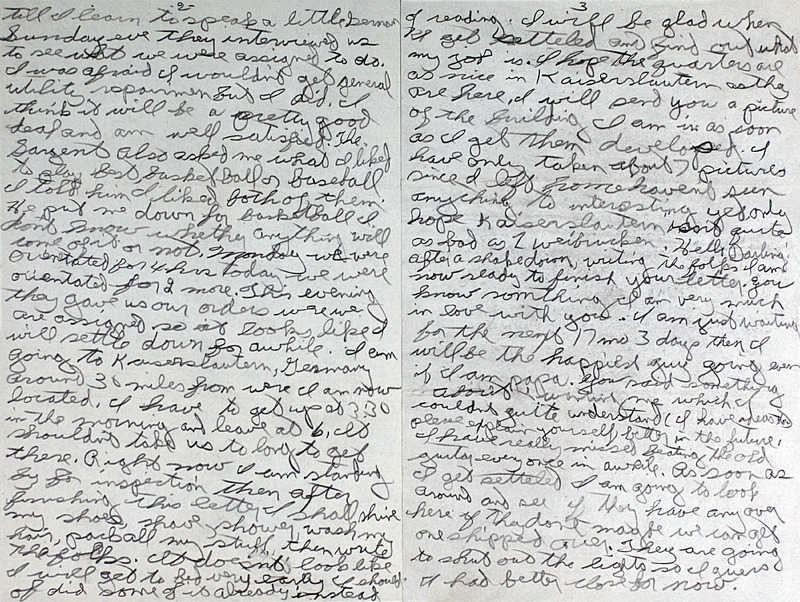 -2-
till I learn to speak a little German
Sunday eve they interviewed us
to see what we were assigned to do.
I was afraid I wouldnt get general
utility repairmen But I did. I
think it will be a pretty good
deal and am well satisfied. The
Sargent also asked me what I liked
to play best basketball or baseball
I told him I liked both of them.
He put me down for basketball I
dont know whether anything will
come of it or not. Monday we were
orientated for 4 hrs today we were
orientated for 2 more. This evening
they gave us our orders were we
are assigned so it looks like I
will settle down for awhile. I am
going to Kaiserslautern, Germany
around 30 miles from were I am now
located. I have to get up at 3:30
in the morning and leave at 6. It
shouldnt take us to long to get
there. Right now I am standing
by for inspection then after
finishing this letter I shall shine
my shoes, shave, shower, wash my
hair, pack all my stuff, then write
the folks. It doesnt look like
I will get to bed very early I should
of did some of it already instead
3
of reading. I will be glad when
I get setteled and find out what
my job is. I hope the quarters are
as nice in Kaiserslautern as they
are here. I will send you a picture
of the building I am in as soon
as I get them developed. I
have only taken about 7 pictures
since I left home havent seen
anything to interesting yet only
hope Kaiserslautern isnt quite
as bad as Zweibrucken. Hello Darling
after a shakedown, writing the folks I am
now ready to finish your letter. you
know somthing I am very much
in love with you. I am just waiting
for the next 17 mo 3 days then I
will be the happiest guy going even
if I am papa. You said something
about me which I
couldnt quite understand (I have a
please explain yourself better in the future.
I have really missed beating the old
guitar every once in awhile. As soon as
I get setteled I am going to look
around and see if they have any over
here if tha dont maybe we can get
one shipped over. They are going
to shut out the lights so I guess
I had better close for now.